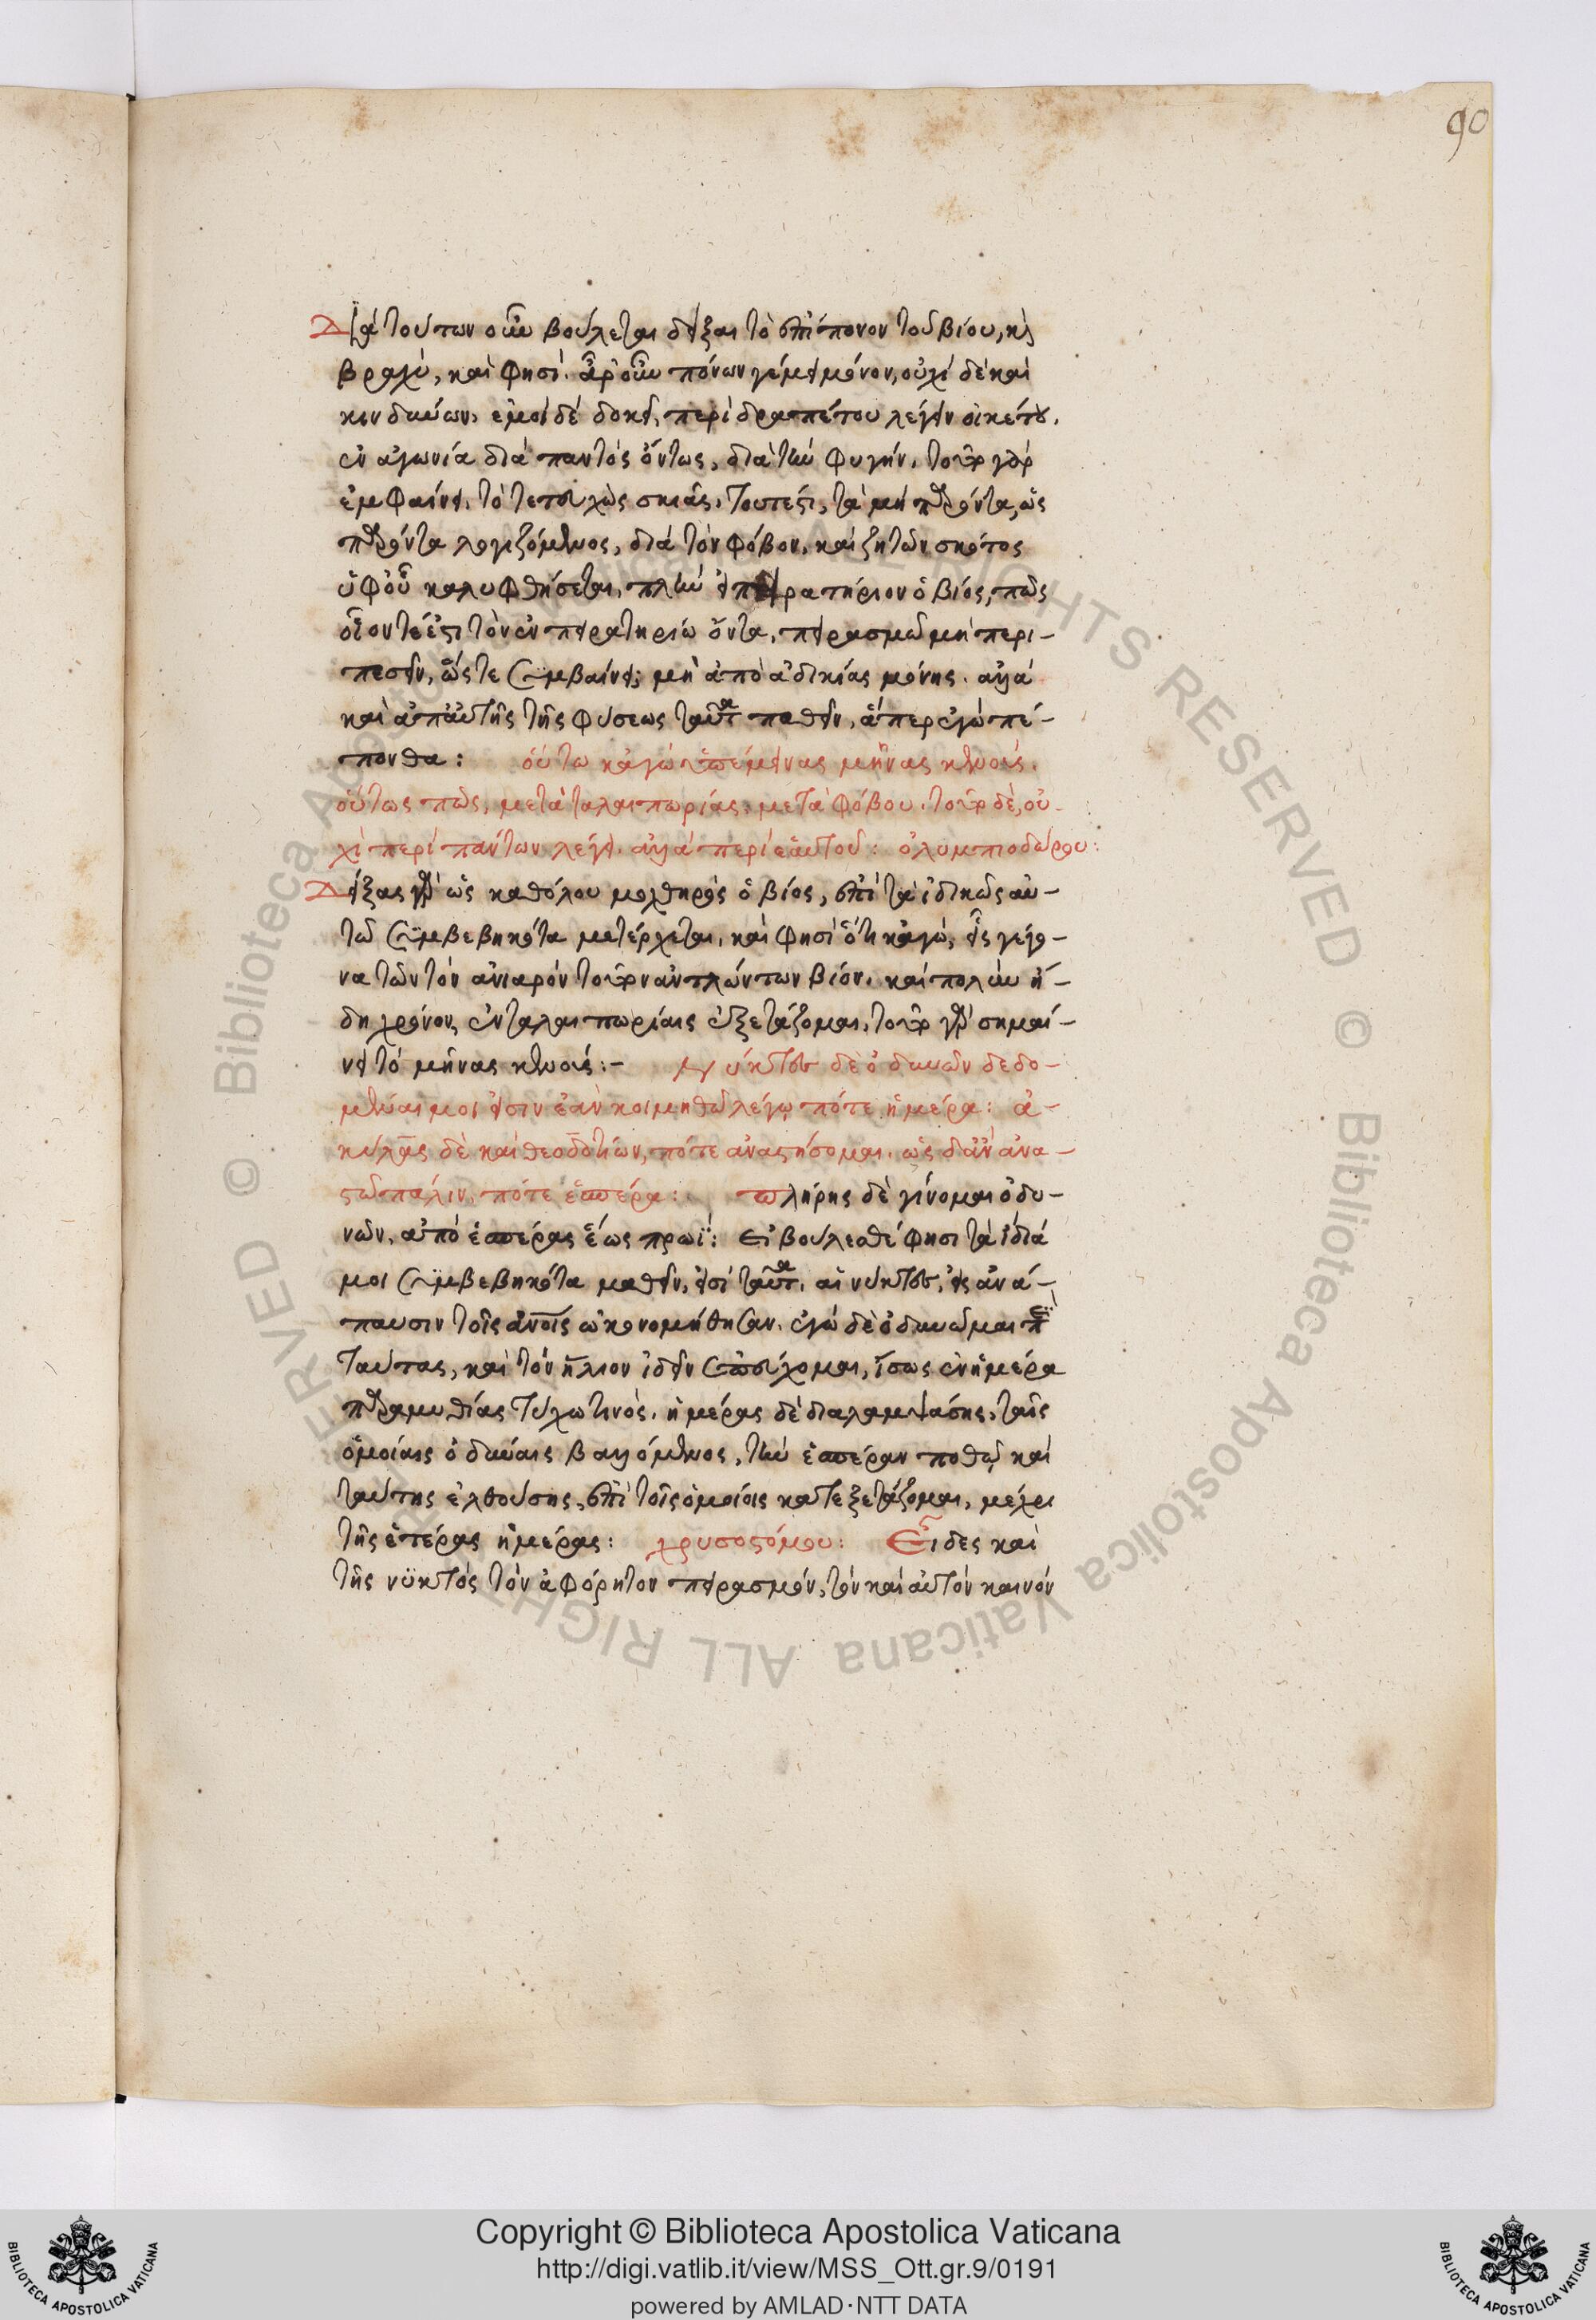 90
Διὰ τούτων οὖν βούλεται δεῖξαι τὸ ἐπίπονον τοῦ βίου, κ
βραχὺ, καὶ φησί. ἆρ' οὖν πόνων γέμει μόνον, οὐχὶ δὲ καὶ
κινδύνων, ἐμοὶ δὲ δοκεῖ, περὶ δραπέτου λέγειν οἰκέτου.
ἐν ἀγωνία διὰ παντὸς ὄντως, διὰ τὴν φυγήν. τοῦτο γὰρ
ἐμφαίνει, τὸ τετυχὼς σκιᾶς. τουτέστι, τὰ μὴ παρόντα, ὡς
παρόντα λογιζόμενος, διὰ τὸν φόβον. καὶ ζητῶν σκότος
ὑφ' οὗ καλυφθήσεται. πλὴν εἰ πειρατήριον ὁ βίος, πῶς
οἷον τέ ἐστι τὸν ἐν πειρατηρίω ὄντα, πειρασμῶ μὴ περι-
πεσεῖν, ὥστε συμβαίνει; μὴ ἀπὸ ἀδικίας μόνης. ἀλλὰ
καὶ ἀπ' αὐτῆς τῆς φύσεως ταῦτα παθεῖν, ἅπερ ἐγὼ πέ-
πονθα: οὕτω κἀγὼ ὑπέμεινας μῆνας κενούς.
οὕτως πῶς, μετὰ ταλαιπωρίας, μετὰ φόβου. τοῦτο δὲ, οὐ-
χὶ περὶ πάντων λέγει. ἀλλὰ περὶ ἑαυτοῦ: ὀλυμπιοδώρου:
Δείξας γὰρ ὡς καθόλου μοχθηρὸς ὁ βίος, ἐπὶ τὰ ἰδικῶς αὐ-
τῶ συμβεβηκότα μετέρχεται. καὶ φησὶ ὅτι κἀγὼ, εἷς γέγο-
να τῶν τὸν ἀνιαρὸν τοῦτον ἀντλώντων βίον. καὶ πολὺν ἤ-
δη χρόνον, ἐν ταλαιπωρίαις ἐξετάζομαι. τοῦτο γὰρ σημαί-
νει τὸ μῆνας κενούς:- νύκτες δὲ ὀδυνῶν δεδο-
μέναι μοι εἰσιν ἐὰν κοιμηθῶ λέγω πότε ἡμέρα: ἀ-
κύλας δὲ καὶ θεοδοτίων, πότε ἀναστήσομαι. ὡς δ' ἂν ἀνα-
στῶ πάλιν, πότε ἑσπέρα: πλήρης δὲ γίνομαι ὀδυ-
νῶν, ἀπὸ ἑσπέρας ἕως πρωΐ: Εἰ βούλεσθέ φησι τὰ ἰδίά
μοι συμβεβηκότα μαθεῖν, εἰσὶ ταῦτα. αἱ νύκτες, εἰς ἀνά-
παυσιν τοῖς ἀνοις ὠκονομήθησαν. ἐγὼ δὲ ὀδυνῶμαι
ταύτας, καὶ τὸν ἥλιον ἰδεῖν ἐπεύχομαι, ἴσως ἐν ἡμέρα
παραμυθίας τύχω τινὸς. ἡμέρας δὲ διαλαμψάσης, ταῖς
ὁμοίαις ὀδύναις βαλλόμενος, τὴν ἑσπέραν ποθῶ, καὶ
ταύτης ἐλθούσης, ἐπὶ τοῖς ὁμοίοις κατεξετάζομαι, μέχρι
τῆς ἑτέρας ἡμέρας: χρυσοστόμου: Εἶδες καὶ
τῆς νυκτὸς τὸν ἀφόρητον πειρασμόν, τὸν καὶ αὐτὸν καινὸν
Copyright © Biblioteca Apostolica Vaticana
http://digi.vatlib.it/view/MSS_Ott.gr.9/0191
powered by AMLAD·NTT DATA